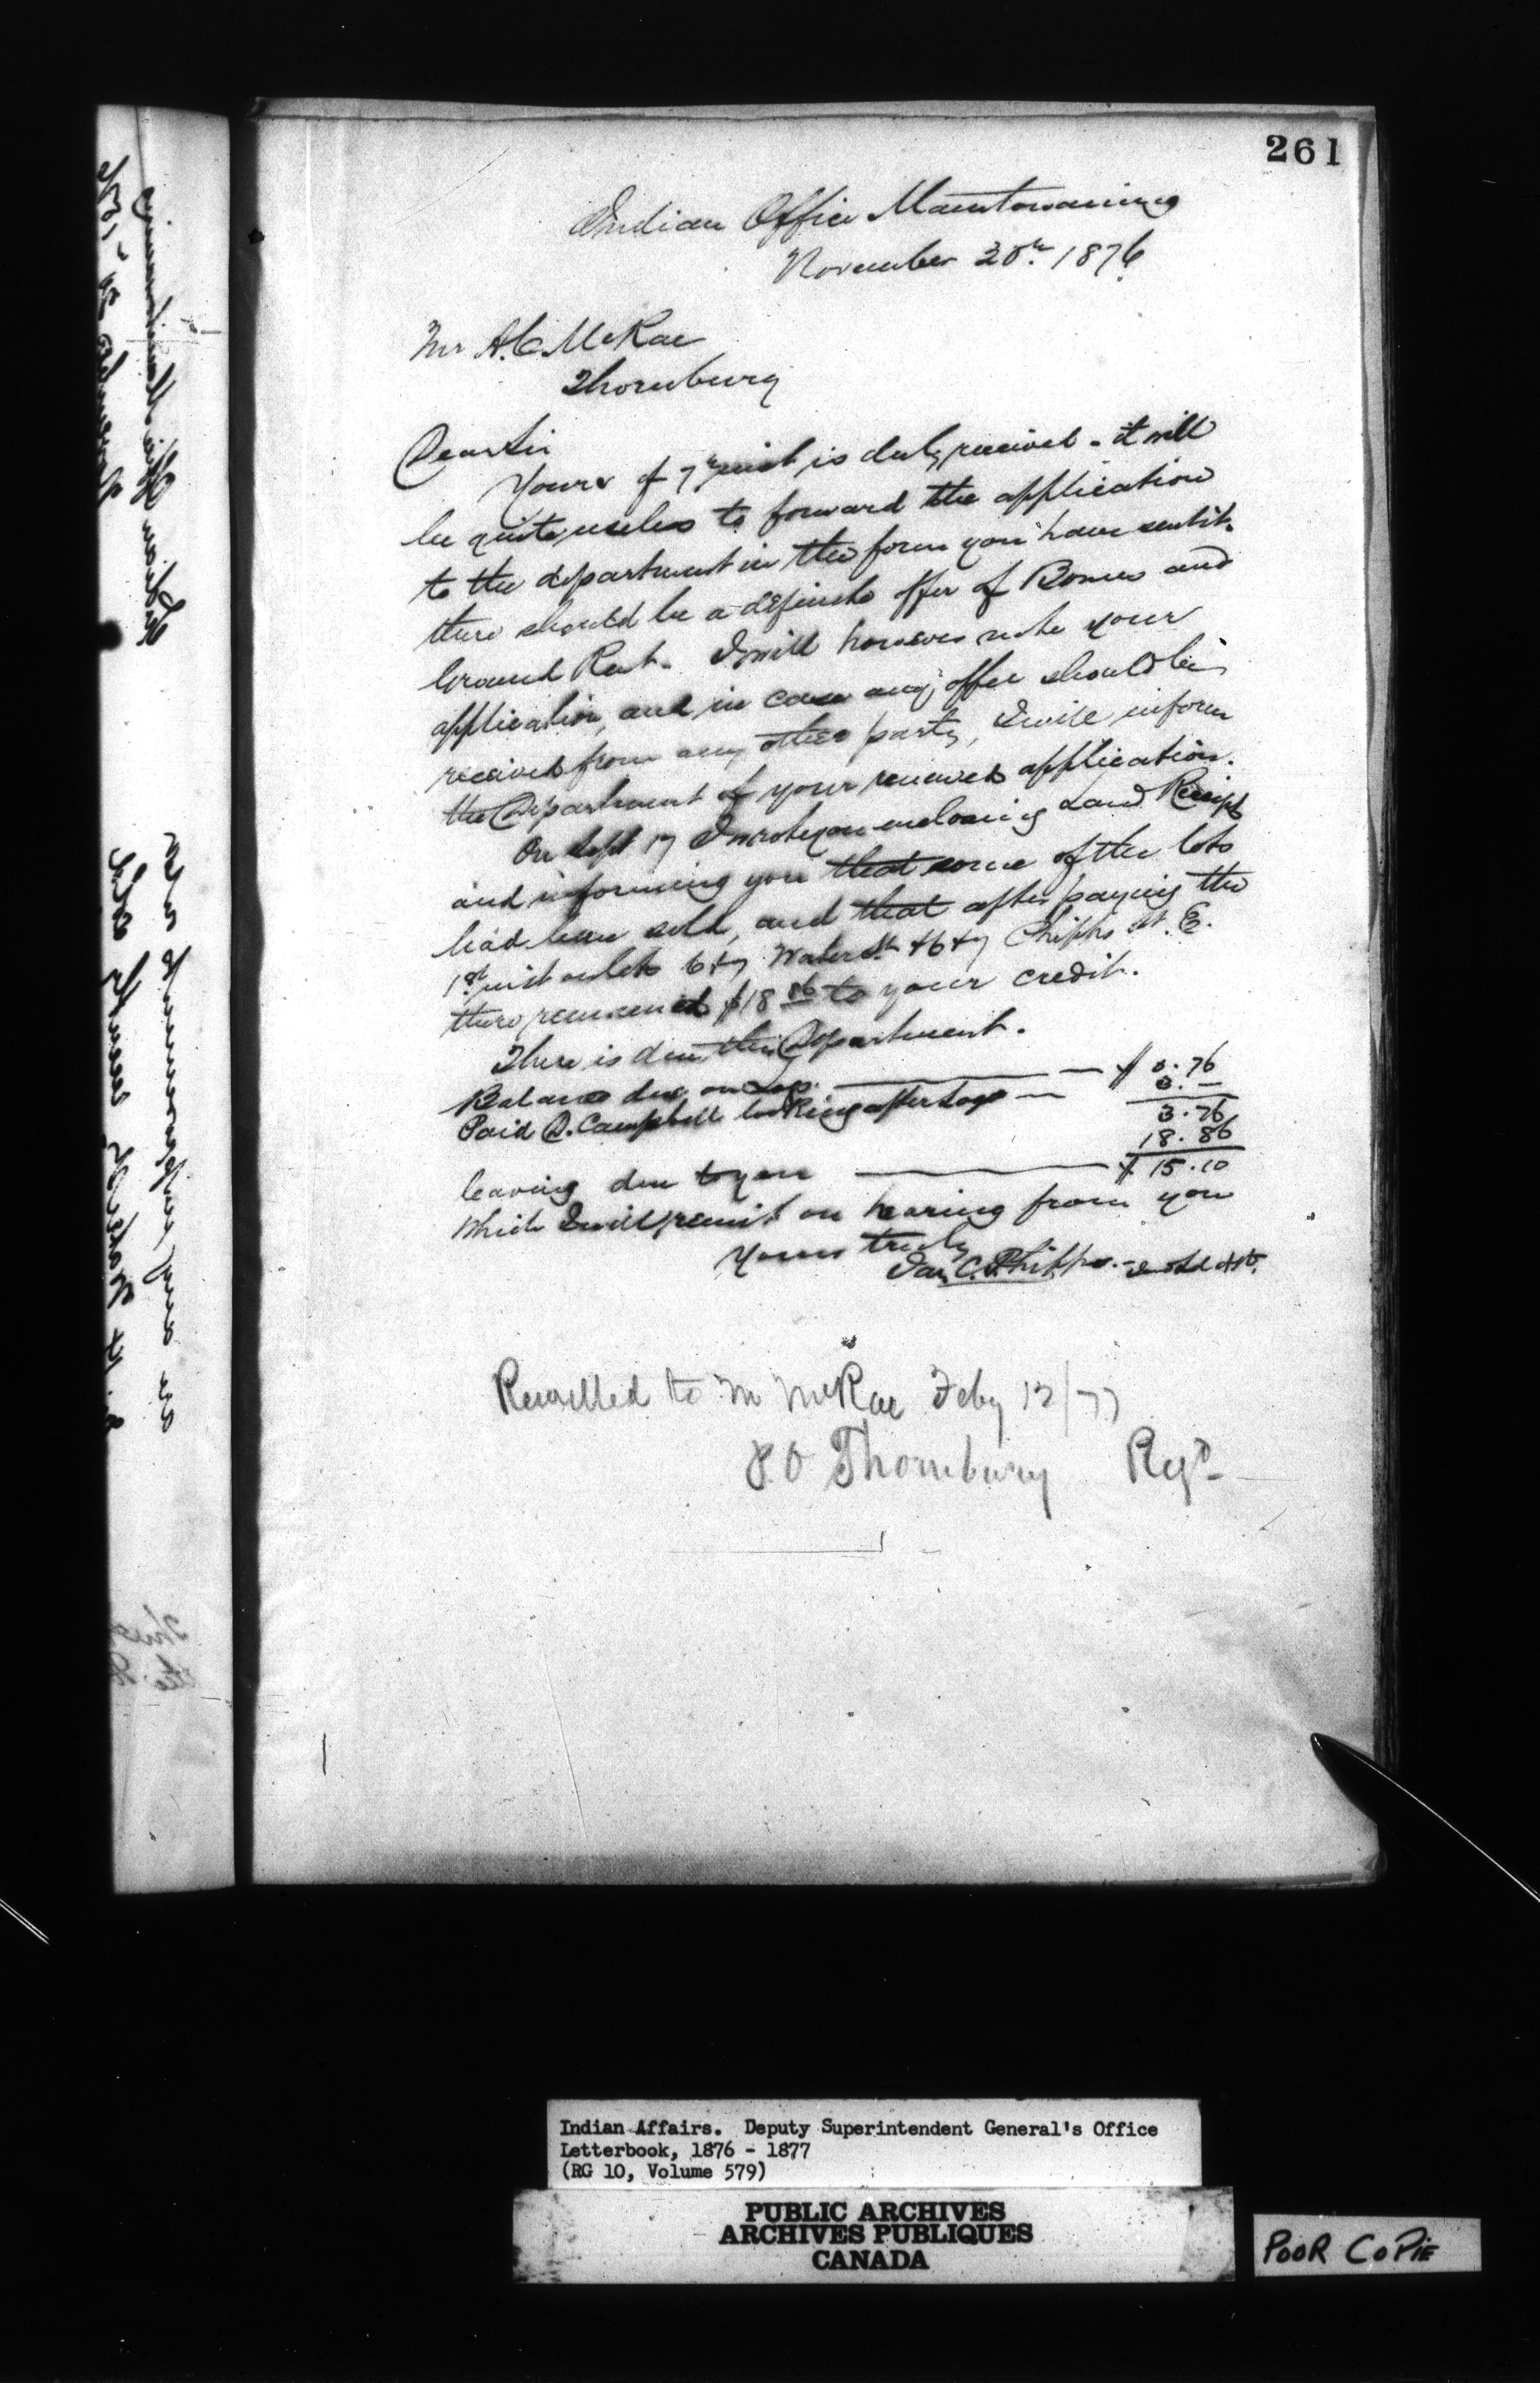 261
Indian Office Manitowaning
November 20th 1876
Mr A. C. McRae
Thornbury
Dear Sir
Yours of 7th inst is duly received - it will
be quite useless to forward the application
to the department in the form you have sent it.
there should be a definite offer of Bonus and
Ground Rent. I will however note your
application, and in case any offer should be
received from any other party, I will inform
the Department of your renewed application.
On Sept 17 I wrote you enclosing Land Receipt
and informing you that some of the lots
had been sold, and that after paying the
1st inst on lots 6 & 7 Water St & 6 & 7 Phipps St. E.
there remained $18 86 to your credit.
There is due the Department.
Balance due on Logs. $ 0.76
Paid D. Campbell looking after Logs 3. —
3.76
18.86
leaving due to you $ 15.10
which I will remit on hearing from you
Yours truly
Jas. C. Phipps.
Remitted to Mr McRae Feby 12/77
P.O Thornbury Regd
Indian Affairs. Deputy Superintendent General's Office
Letterbook, 1876 - 1877
(RG 10, Volume 579)
PUBLIC ARCHIVES
ARCHIVES PUBLIQUES
CANADA
POOR COPIE